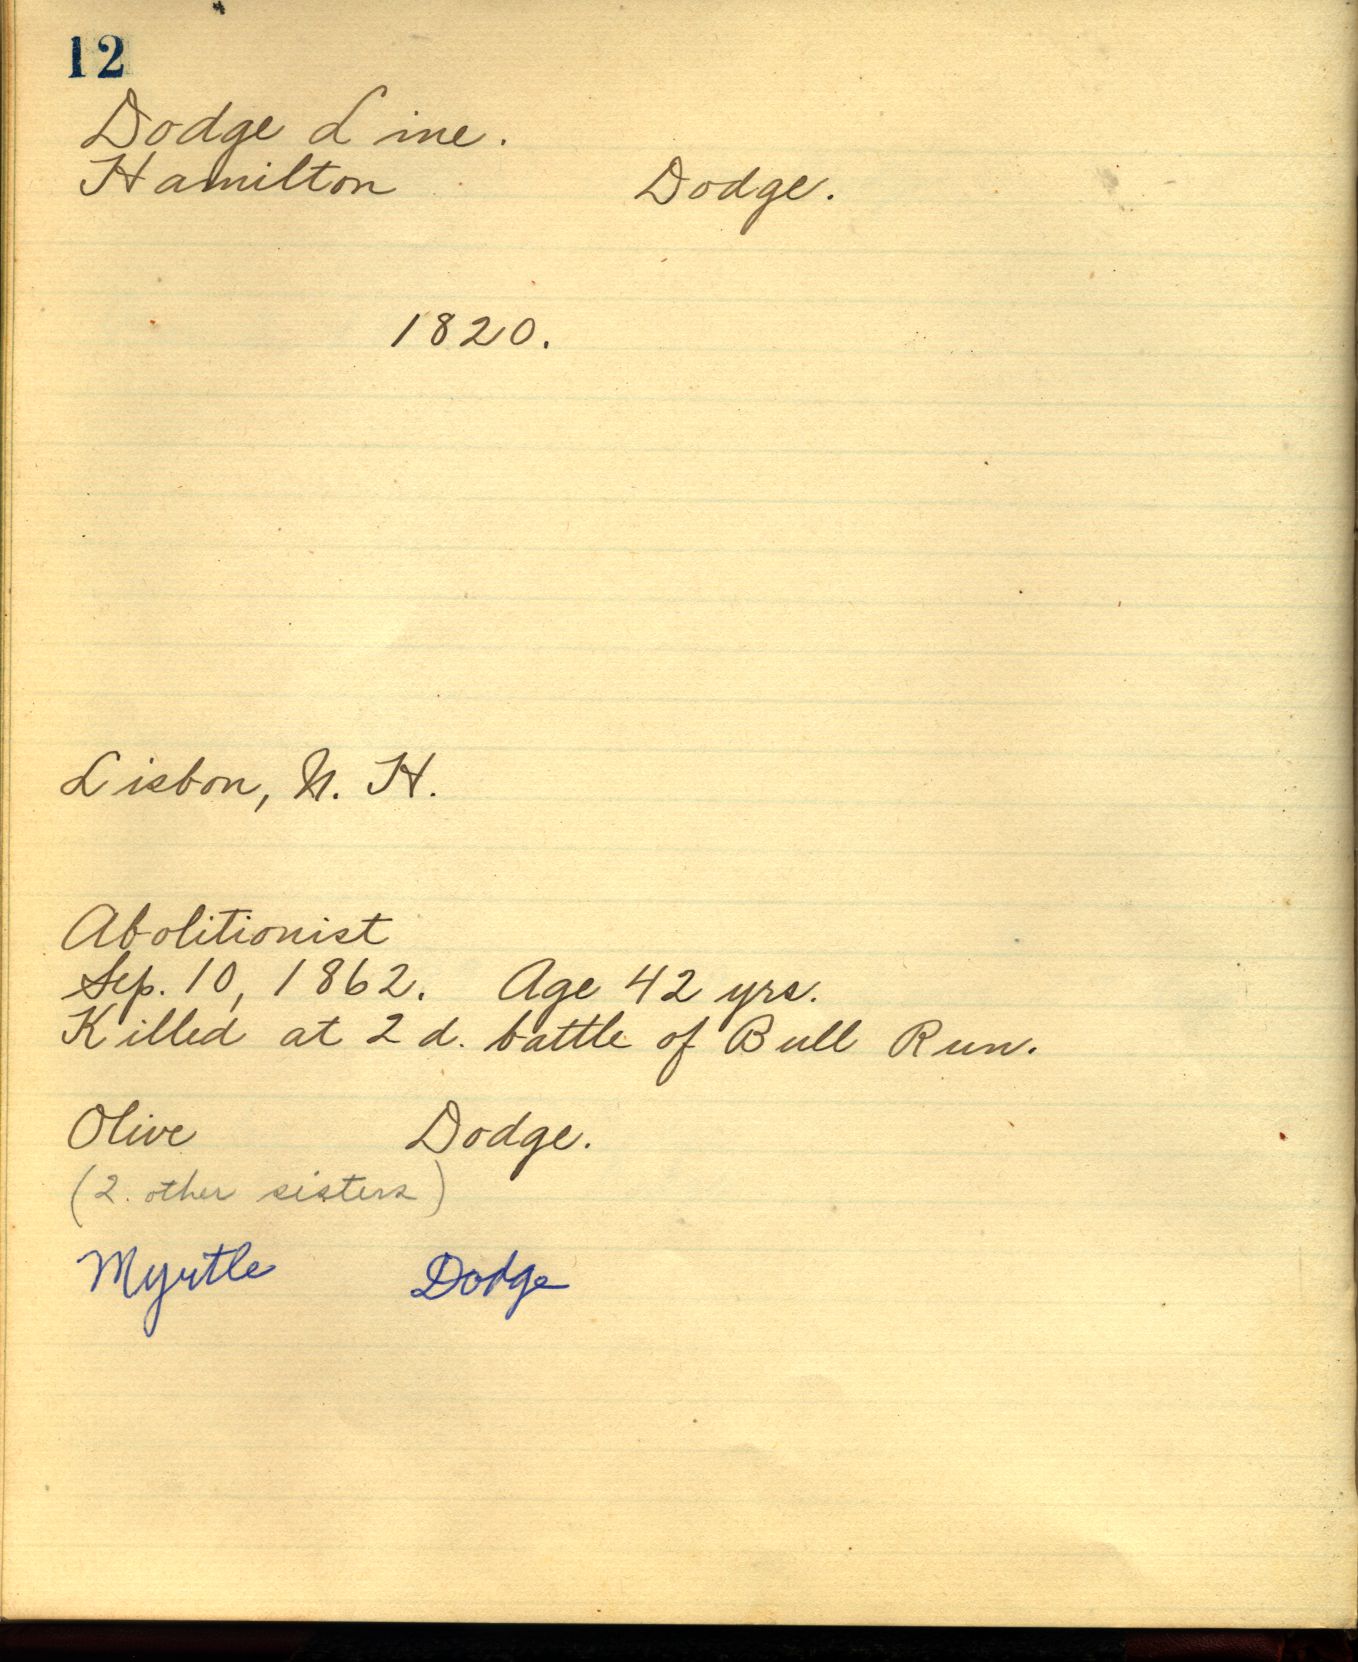 12
Dodge Line.
Hamilton Dodge.
1820.
Lisbon, N. H.
Abolitionist
Sep. 10, 1862. Age 42 yrs.
Killed at 2 d. battle of Bull Run.
Olive Dodge.
(2. other sisters)
Myrtle Dodge